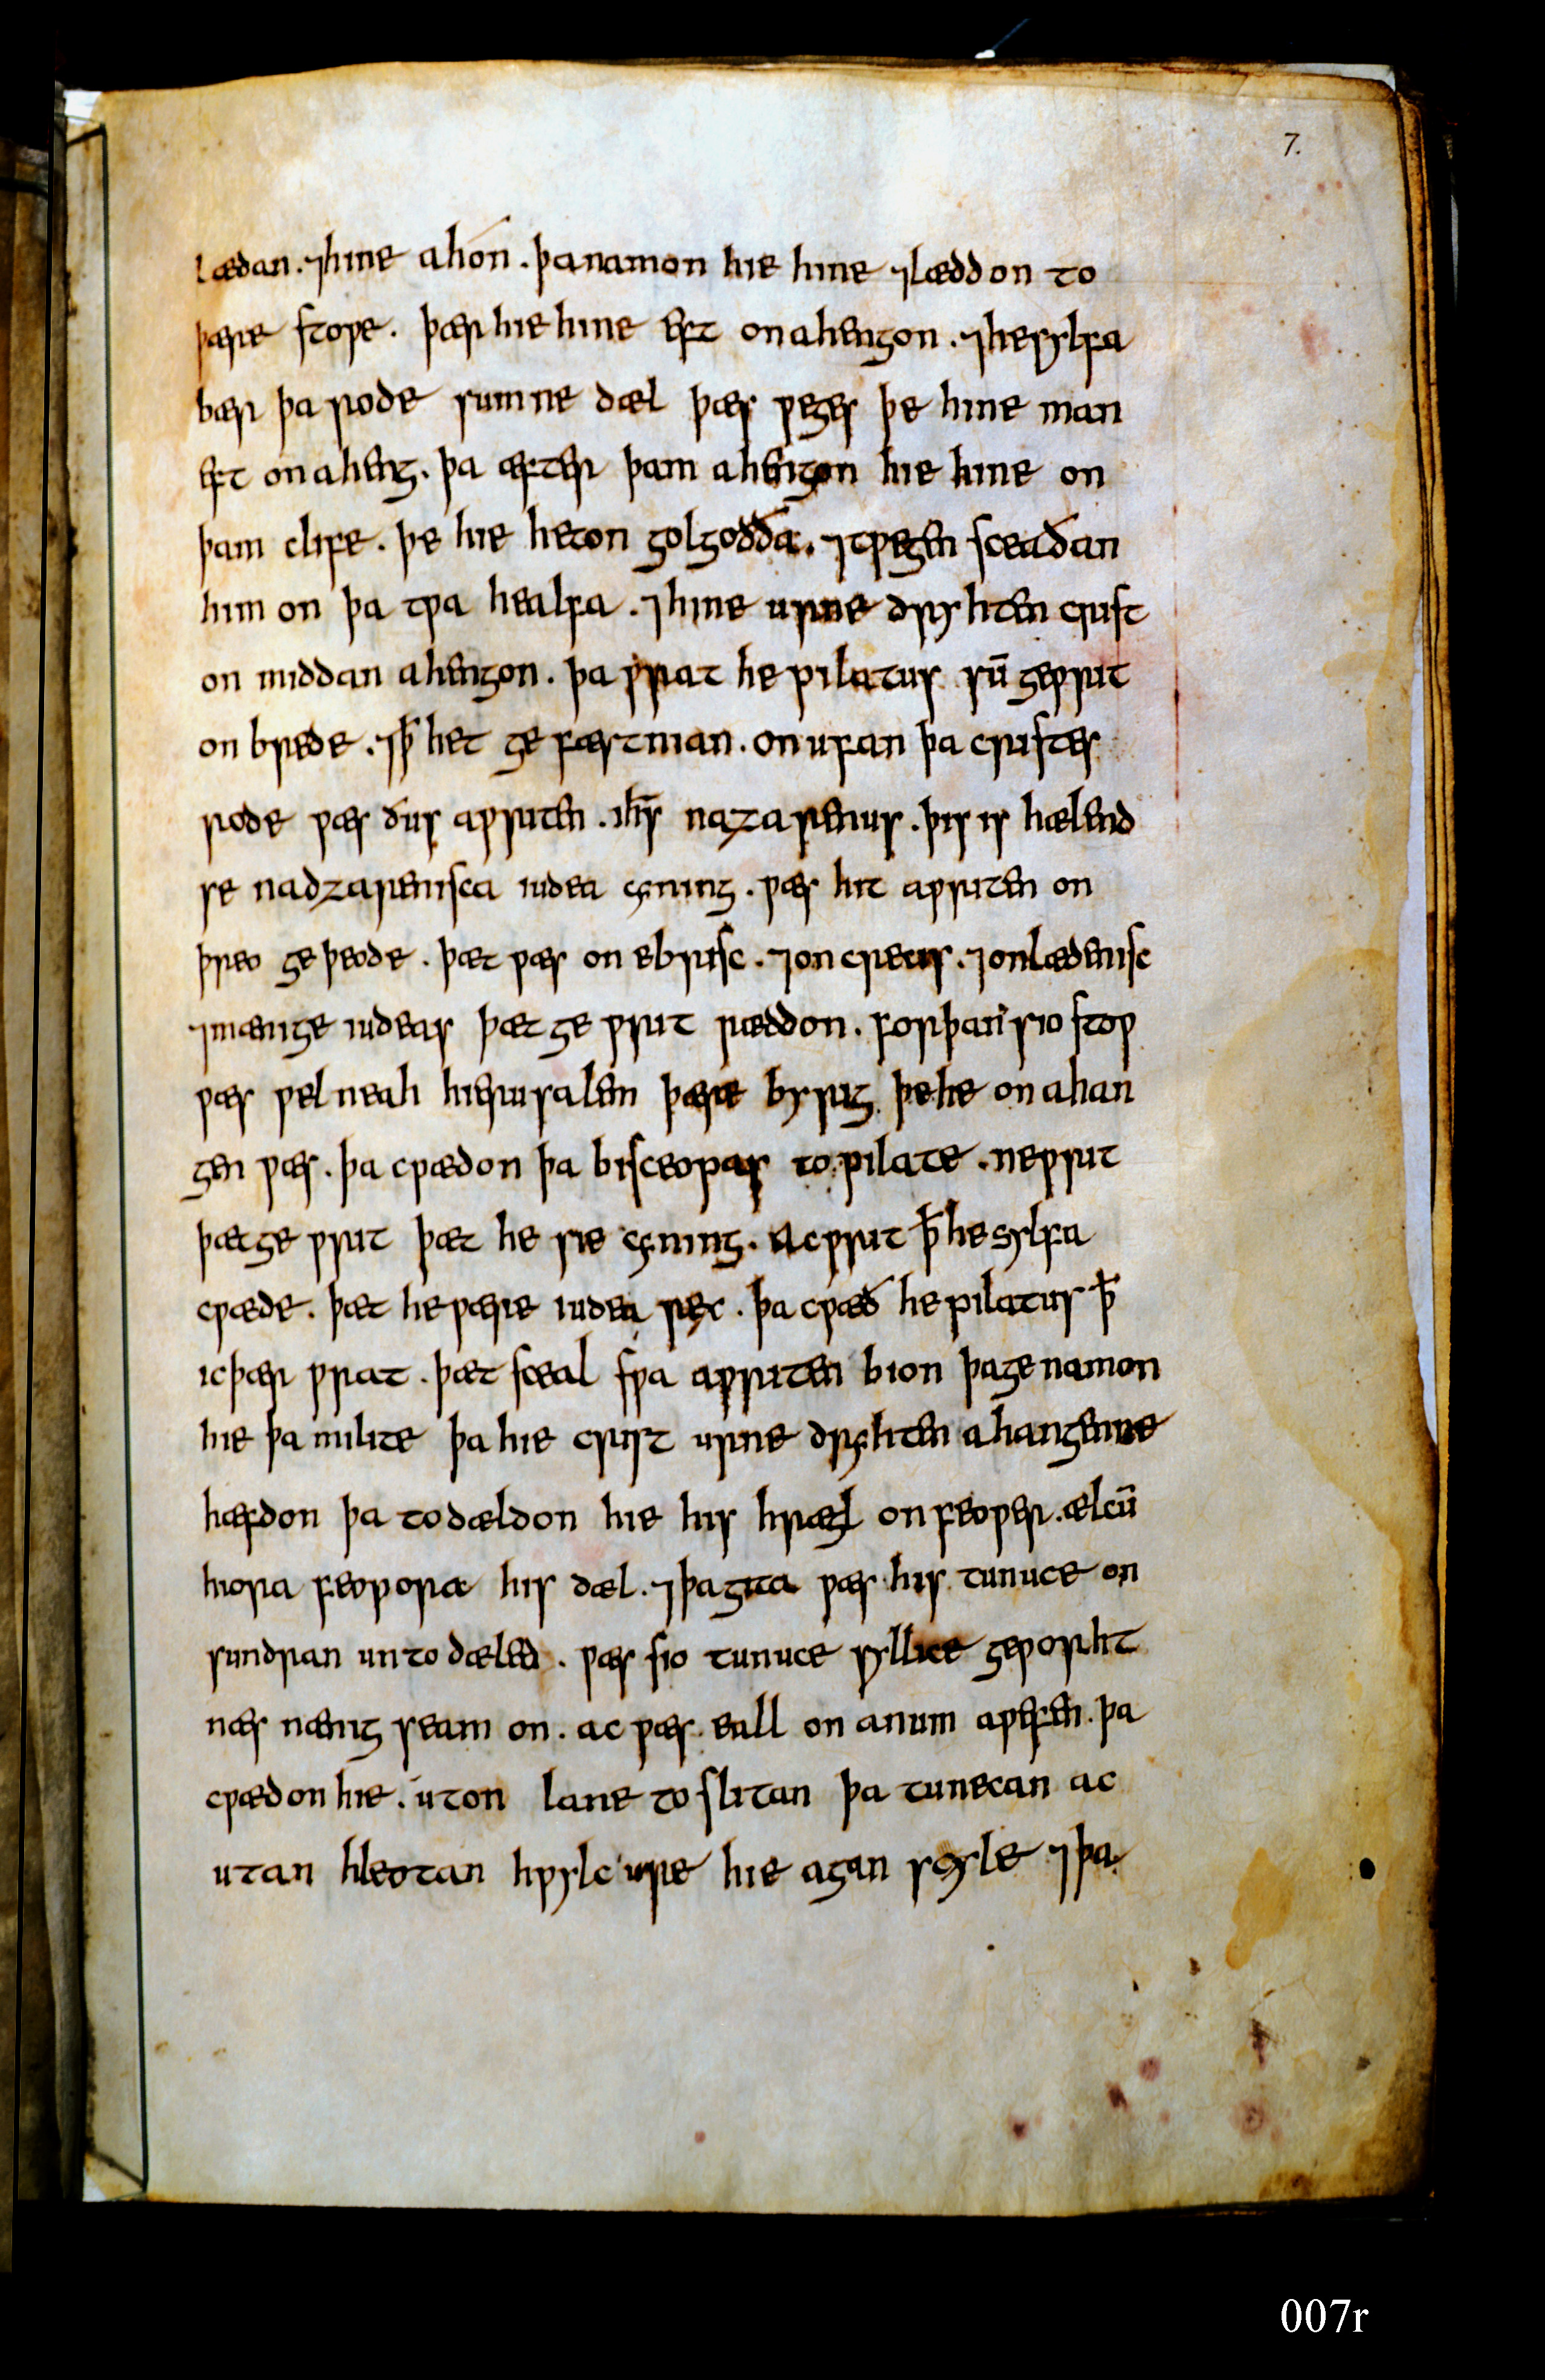 7.
lædan. ⁊ hine ahón. þa namon hie hine ⁊ læddon to
þære stoƿe. þær hie hine eft on ahengon. ⁊ he sylfa
bær þa rode sumne dæl þæs ƿeges þe hine man
eft on aheng. þa æfter þam ahengon hie hine on
þam clife. þe hie heton golgoðða. ⁊ tƿegen sceaðan
him on þa tƿa healfa. ⁊ hine urne dryhten crist
on middan ahengon. þa ƿrat he pilatus sū geƿrit
on brede. ⁊ ꝥ het gefæstnian. on ufan þa cristes
rode ƿæs ðus aƿriten. ihs̄ nazarenus. þis is hælend
se nadzarenisca iudea cyning. ƿæs hit aƿriten on
þreo geþeode. þæt ƿæs on ebrisc. ⁊ on crecis. ⁊ on lædenisc
⁊ mænige iudeas þæt geƿrit ræddon. forþan sio stoƿ
ƿæs ƿel neah hierusalem þære byrig þe he on ahan
gen ƿæs. þa cƿædon þa bisceopas to pilate. ne ƿrit
þæt geƿrit þæt he sie cyning. Ac ƿrit ꝥ he sylfa
cƿæde. þæt he ƿære iudea rex. þa cƿæð he pilatus ꝥ
ic þær ƿrat. þæt sceal sƿa aƿriten bion þa genamon
hie þa milite þa hie crist urne dryhten ahangenne
hæfdon þa todældon hie his hrægl on feoƿer. ælcū
hiora feoƿora his dæl. ⁊ þa gita ƿæs his tunuce on
sundran untodæled. ƿæs sio tunuce syllice geƿorht
næs nænig seam on. ac ƿæs eall on anum aƿefen. þa
cƿædon hie. úton lane toslitan þa tunecan ac
utan hleotan hƿylc ure hie agan scyle ⁊ þa
007r